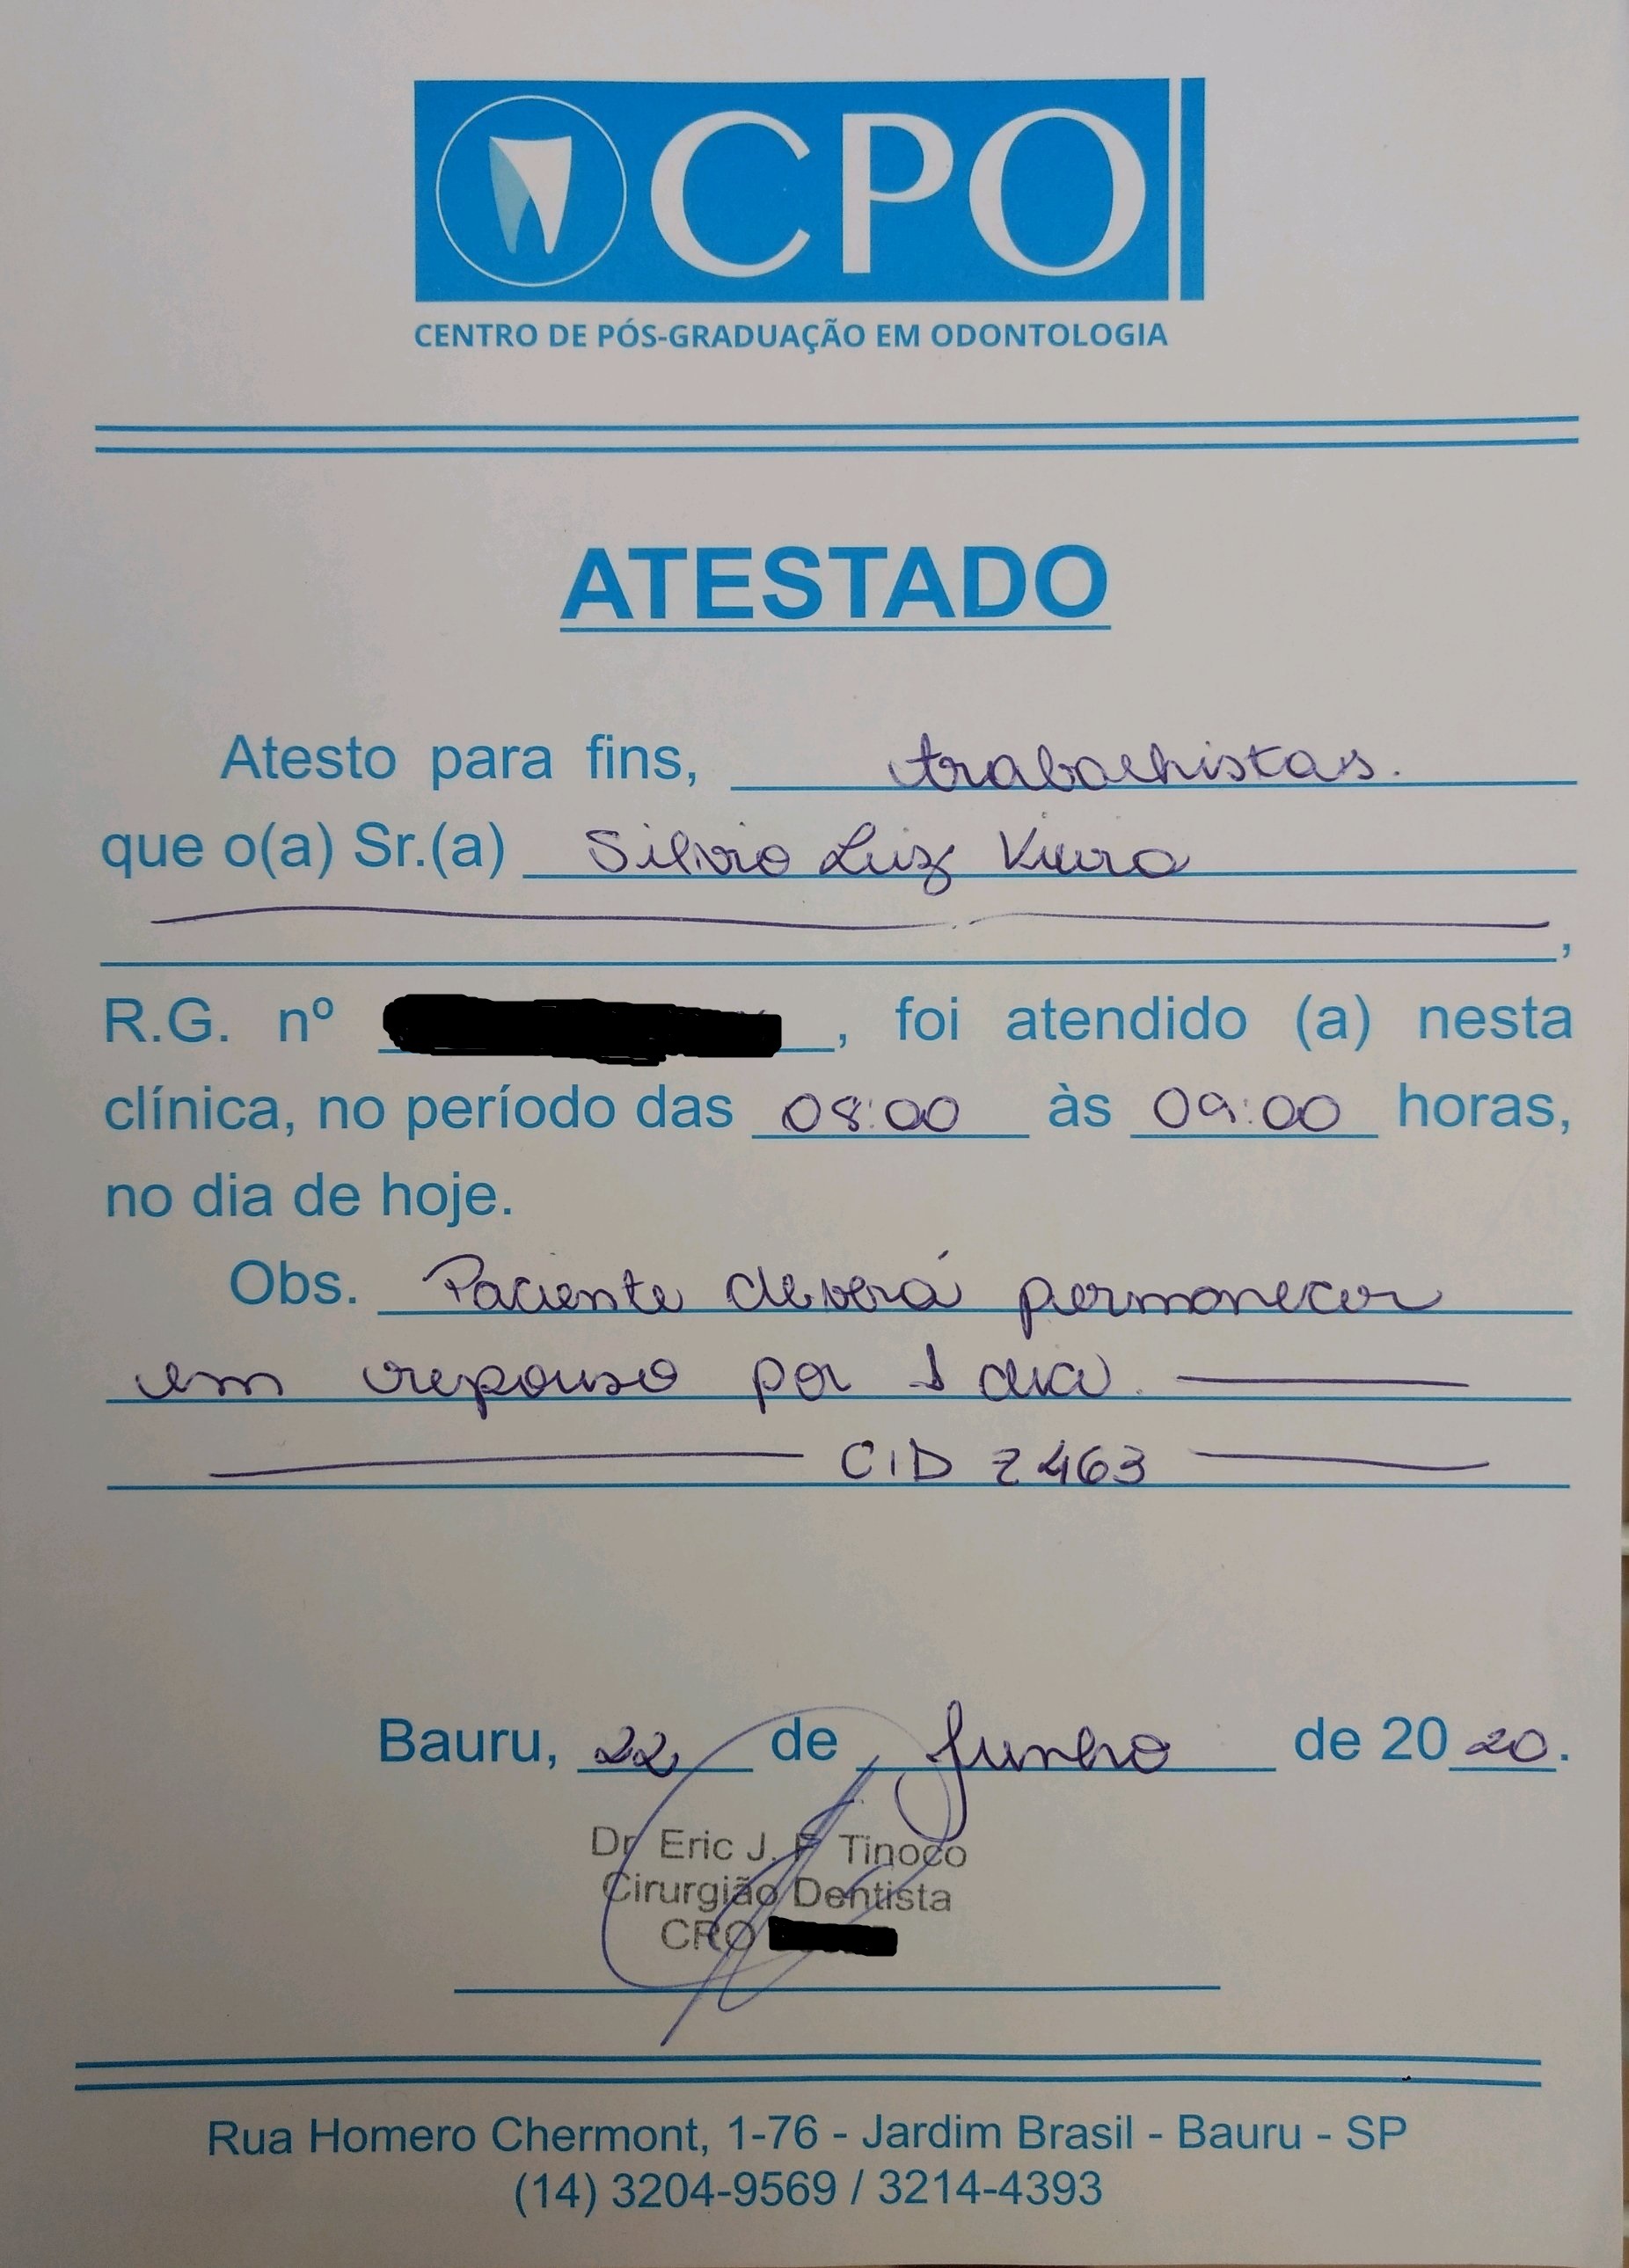 CPO
CENTRO DE PÓS-GRADUAÇÃO EM ODONTOLOGIA
ATESTADO
Atesto para fins, trabalhistas.
que o(a) Sr.(a) Silvio Luiz Vieira
,
R.G. nº , foi atendido (a) nesta
clínica, no período das 08:00 às 09:00 horas,
no dia de hoje.
Obs. Paciente deverá permanecer
em repouso por 1 dia.
CID Z463
Bauru, 22 de Junho de 2020.
Dr Eric J. F Tinoco
Cirurgião Dentista
CRO
Rua Homero Chermont, 1-76 - Jardim Brasil - Bauru - SP
(14) 3204-9569 / 3214-4393